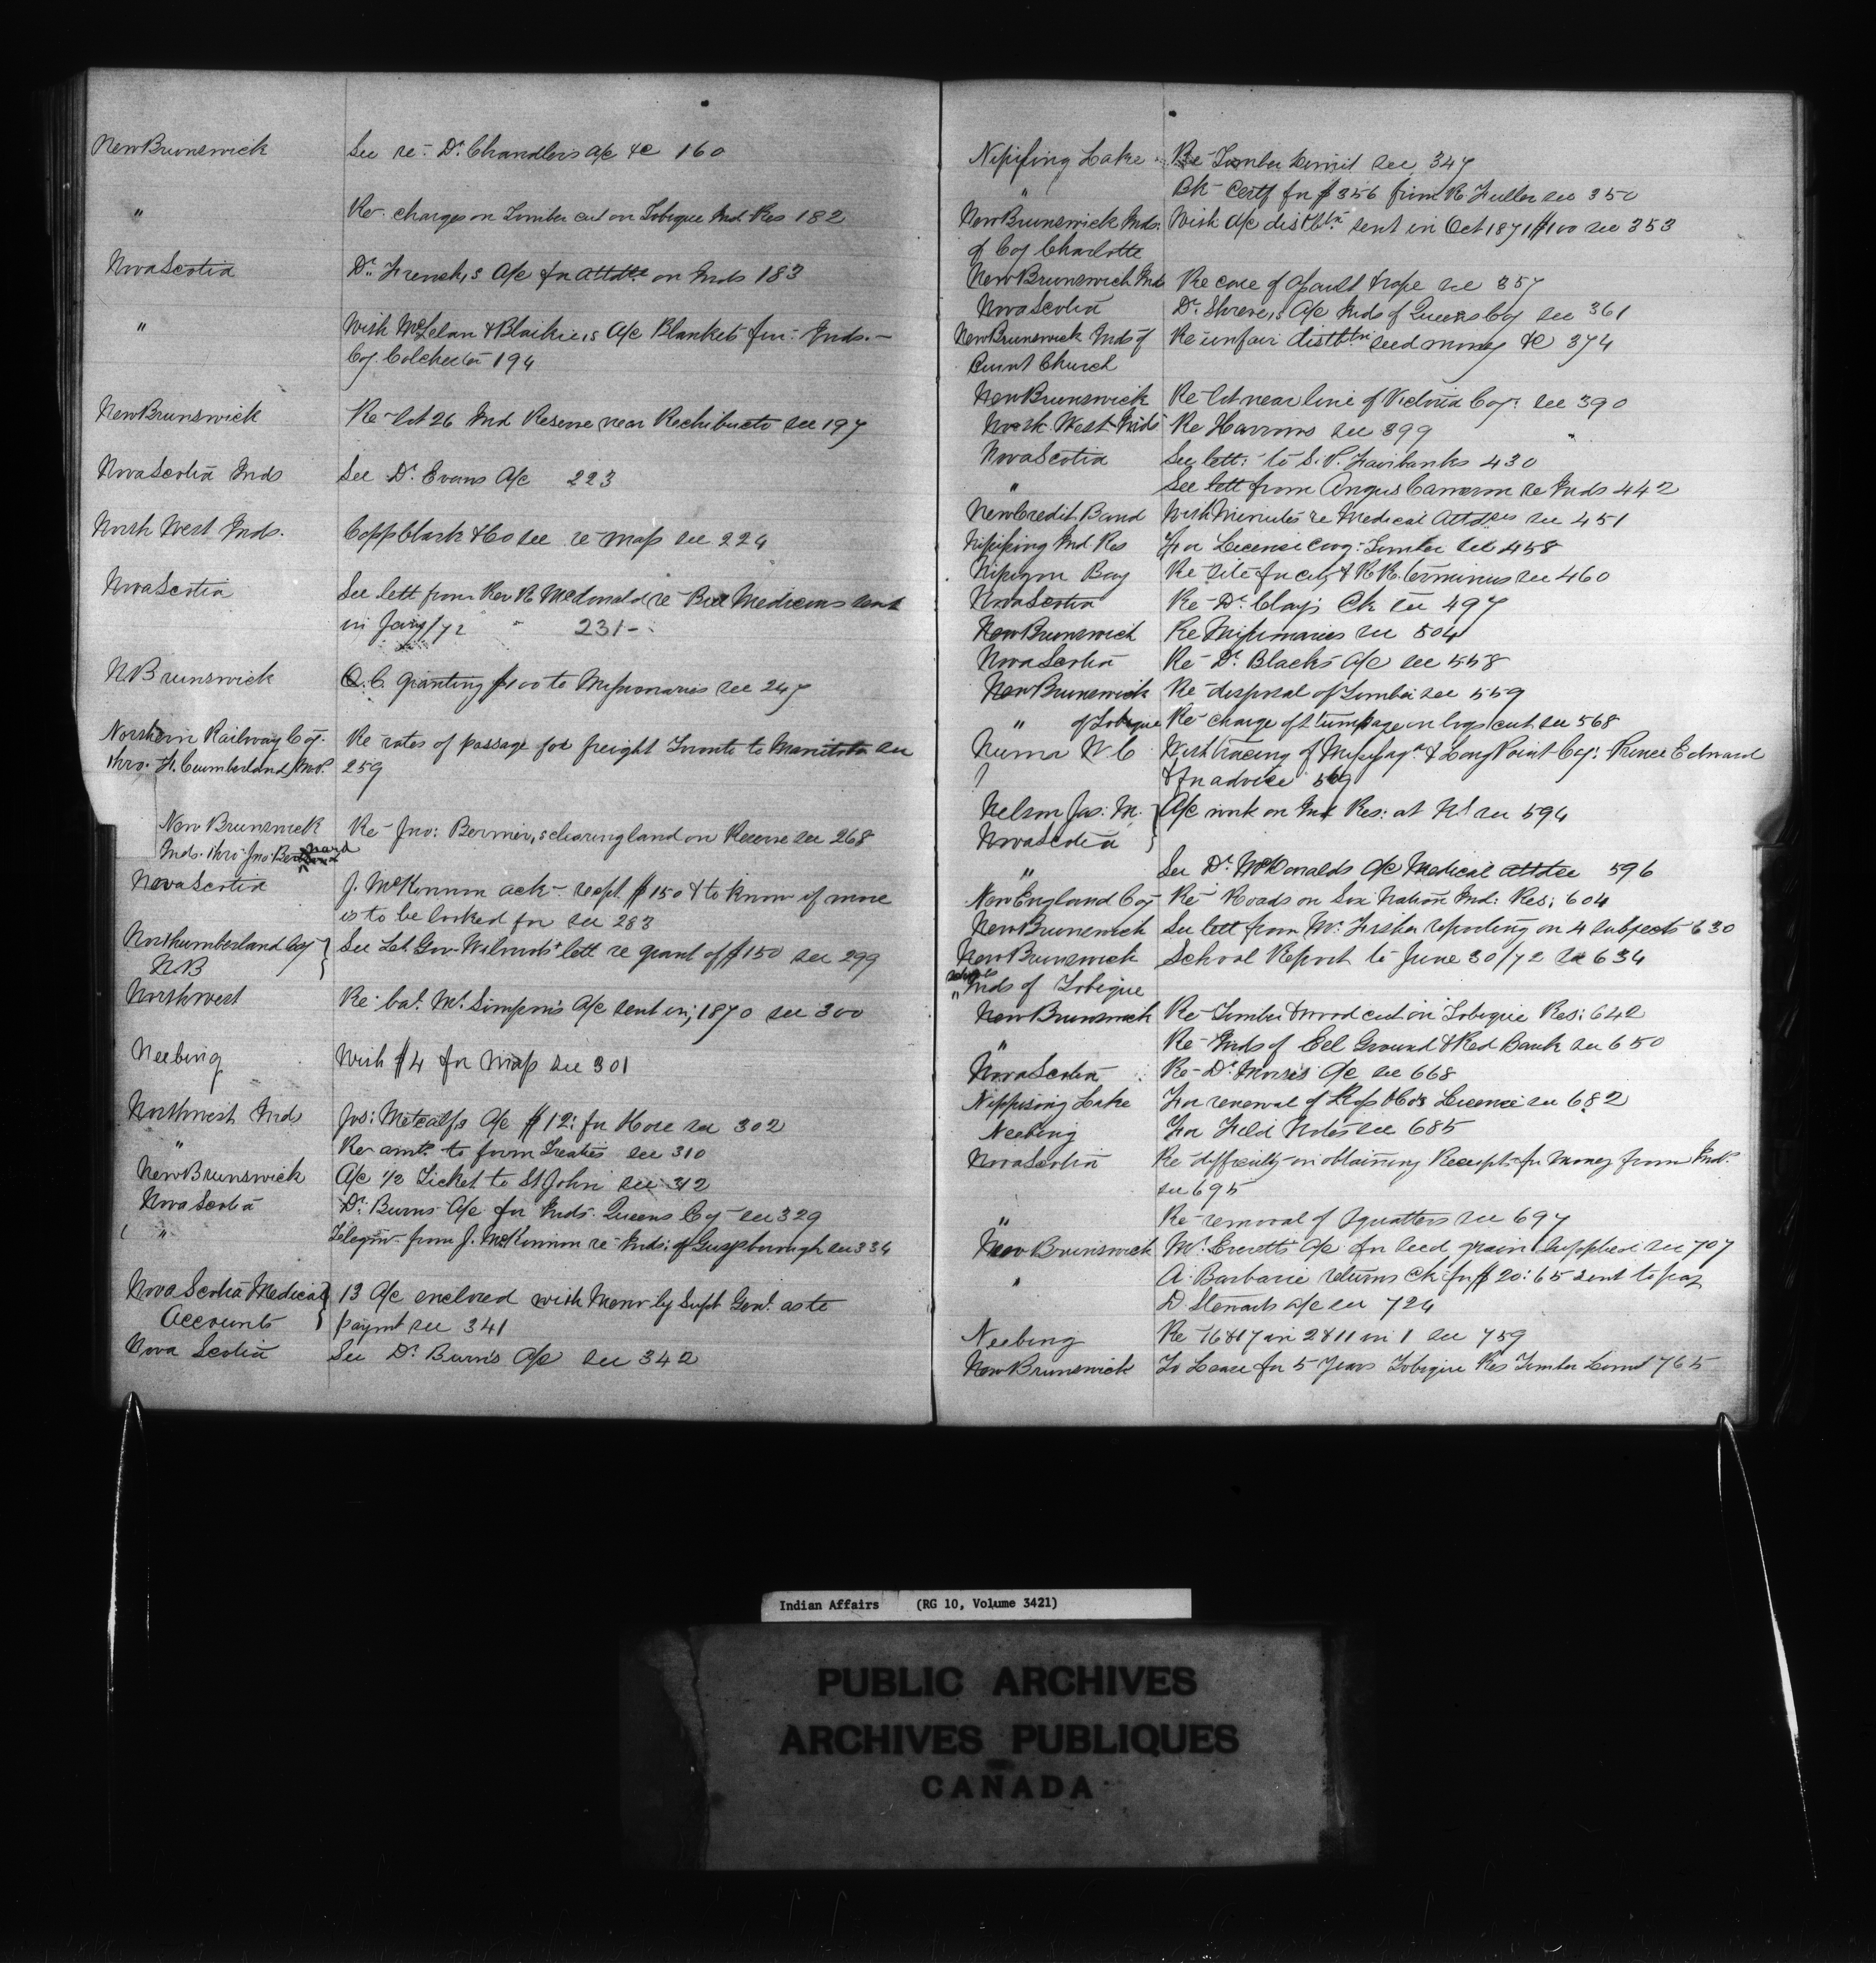 New Brunswick See re: Dr. Chandlers a/c &c 160
" Re charges on Timber cut on Tobique Ind. Res 182
Nova Scotia Dr. French's a/c for attdce on Inds 183
" With McLelan & Blaikie's a/c Blankets for Inds.
Coy. Colchester 194
New Brunswick Re lot 26 Ind Reserve near Rechibucto see 197
Nova Scotia Inds See Dr. Evans a/c 223
North West Inds. Copp Clark & Co see re map see 224
Nova Scotia See lett from Rev R McDonald re Medicines sent
in Jany/72 " 231
N Brunswick O.C. granting $100 to Missionaries see 247
Northern Railway Coy. Re rates of passage for freight Toronto to Manitoba see
thro. F. Cumberland M.P. 259
New Brunswick Re Jno: Bernier's clearing land on Reserve see 268
Inds. thro Jno Bernard
Nova Scotia J. McKinnon ack recpt. $150 & to know if more
is to be looked for see 283
Northumberland Coy See Lt. Gov. Wilmots lett re grant of $150 see 299
NB
Northwest Re bal. Mr. Simpson's a/c sent in, 1870 see 300
Neebing With $4 for map see 301
Northwest Ind Jos: Metcalfs a/c $12: for Hose see 302
" Re amt. to form Treaties see 310
New Brunswick A/c 1/2 Ticket to St John see 312
Nova Scotia Dr. Burns a/c for Inds. Queens Coy see 329
" Telegm from J. McKinnon re Inds: of Guysborough see 334
Nova Scotia Medical 13 a/c enclosed with Memo by Supt Genl. as to
Accounts paymt see 341
Nova Scotia See Dr. Burn's a/c see 342
Nipissing Lake Re Timber Limit see 347
" Bk Certf for $356 from R Fuller see 350
New Brunswick Inds. With a/c distbtn. sent in Oct 1871 $100 see 353
of Coy Charlotte
New Brunswick Ind Re case of see 357
Nova Scotia Dr. Shreve's a/c Inds of Queens Coy see 361
New Brunswick Inds of Re unfair distbtn seed money &c 374
Burnt Church
New Brunswick Re lot near line of Victoria Coy: see 390
North West Inds Re Harrons see 399
Nova Scotia See lett: to S. P. Fairbanks 430
" See lett from Angus Cameron re Inds 442
New Credit Band With Minutes re Medical attdces see 451
Nipissing Ind Res For License Timber see 458
Nipigon Bay Re site for city & R.R. terminus see 460
Nova Scotia Re Dr. Clay's Ck see 497
New Brunswick Re Missionaries see 504
Nova Scotia Re Dr. Blacks a/c see 558
New Brunswick Re disposal of Timber see 559
" of Tobique Re charge of stumpage on logs cut see 568
W C With tracing of & Long Point Coy: Prince Edward
& for advice 569
Nelson Jas: M. A/c work on Ind Res: at N.S see 594
Nova Scotia
" See Dr. McDonalds a/c Medical attdce 596
New England Coy Re Roads on Six Nation Ind: Res: 604
New Brunswick See lett from Mr. Fisher reporting on 4 subjects 630
New Brunswick School Report to June 30/72 see 634
schools
" Inds of Tobique
New Brunswick Re Timber & wood cut on Tobique Res: 642
" Re Inds of Eel Ground & Red Bank see 650
Nova Scotia Re Dr. Morris a/c see 668
Nippising Lake For renewal of & Co's License see 682
Neebing For Field Notes see 685
Nova Scotia Re difficulty in obtaining Receipts for money from Ind.
see 695
" Re removal of Squatters see 697
New Brunswick Mr. Everetts a/c for seed grain supplied see 707
" A Barbarie returns Ck for $20:65 sent to pay
D Stewarts a/c see 724
Neebing Re 16 & 17 in 2 & 11 in 1 see 759
New Brunswick To Lease for 5 years Tobique Res Timber Limit 765
Indian Affairs (RG 10, Volume 3421)
PUBLIC ARCHIVES
ARCHIVES PUBLIQUES
CANADA